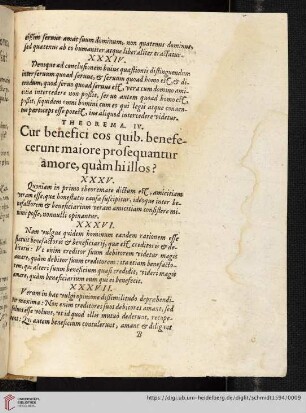 etiam servus amat suum dominum, non quatenus dominus,
sed quatenus ab eo humaniter atque liberaliter tractatur.
XXXIV.
Denique ad conclusionem huius quaestionis distinguendum
inter servum quoad servus, & servum quoad homo est, & di-
cendum, quod servo quoad servus est, vera cum domino ami-
citia intercedere non possit, servo autem quoad homo est,
possit, siquidem
THEOREMA. IV.
Cur benefici eos quib. benefe-
cerunt maiore prosequantur
amore, quàm hi illos?
XXXV.
Quoniam in primo theoremate dictum est, amicitiam
veram esse, quae honestatis causa suscipitur, ideoque inter be-
nefactorem & beneficiarium veram amicitiam consistere mi-
nimè posse, nonnulli opinantur.
XXXVI.
Nam vulgus quidem hominum eandem rationem esse
putat benefactoris & beneficiarij, quae est creditoris & de-
bitoris: Ut enim creditor suum debitorem videtur magis
amare, quàm debitor suum creditorem: ita etiam benefacto-
rem, qui alteri suum beneficium quasi credidit, videri magis
amare, quàm beneficiarium eum qui eo benefecit.
XXXVII.
Verum in hac vulgi opinione dissimilitudo deprehendi-
tur maxima: Non enim creditores suos debitores amant, sed
esse volunt, ut id quod illis mutuò dederunt, recupe-
rent: Qui autem beneficium contulerunt, amant & diligunt
B
UNIVERSITÄTS-
BIBLIOTHEK
HEIDELBERG
https://digi.ub.uni-heidelberg.de/diglit/schmidt1594/0009